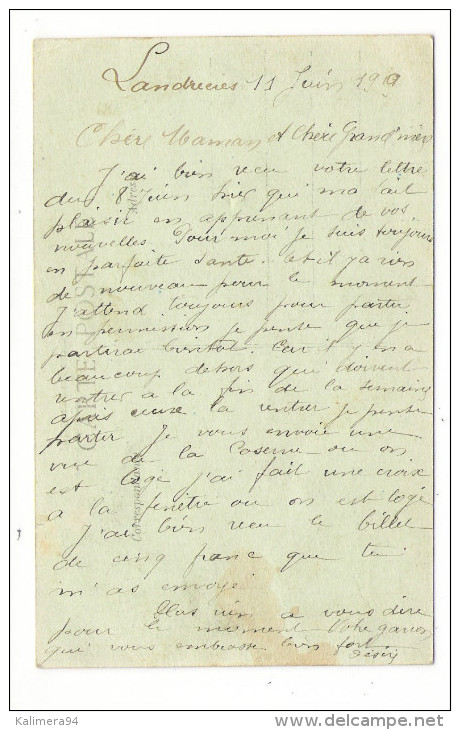 Landrecies 11 Juin 19
Chère Maman et Chère Grand'mère
J'ai bien recu votre lettre
du 8 Juin hier qui ma fait
plaisir en apprenant de vos
nouvelles. Pour moi je suis toujours
en parfaite santé. et il y a rien
de nouveau pour le moment
J'attend toujours pour partir
en permission je pense que je
partirai bientôt. Car il y en a
beaucoup dehors qui doivent
rentrer a la fin de la semaine
apres ceux la rentrer je pense
partir Je vous envoie une
vue de la Caserne ou on
est logé j'ai fait une croix
a la fenêtre ou on est logé
J'ai bien recu le billet
de cinq franc que tu
m'as envoyé.
Plus rien a vous dire
pour le moment Votre garcon
qui vous embrasse bien fort
Désiré
CARTE POSTALE
Correspondance
Adresse
Kalimera94